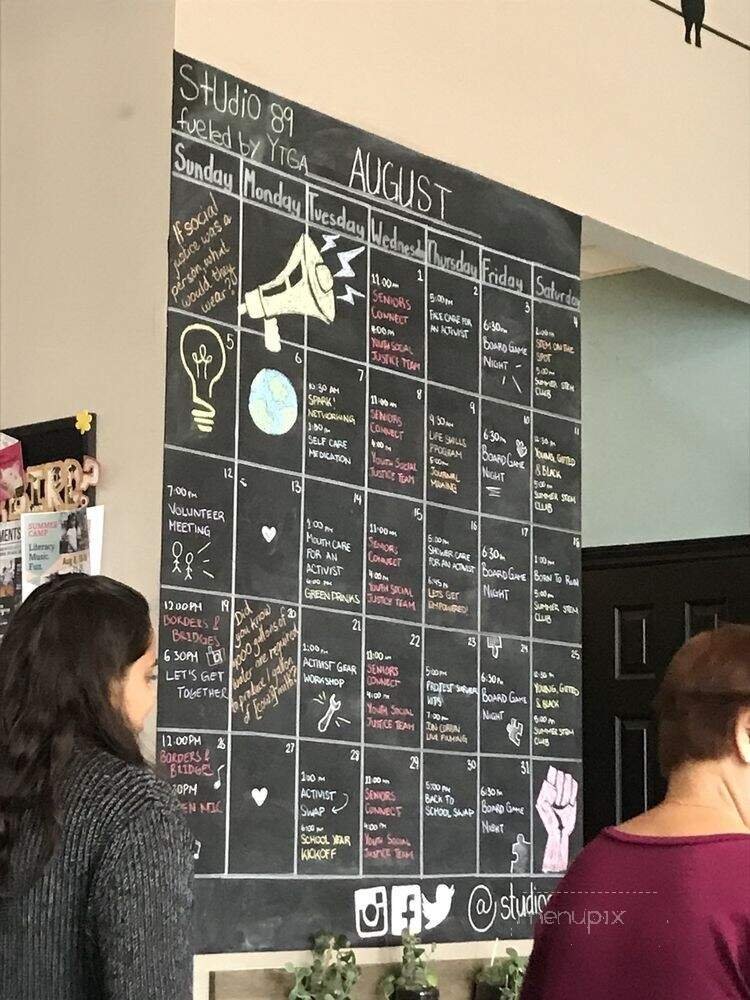 Studio 89
fueled by YTGA
AUGUST
Sunday
Monday
Tuesday
Wednesday
Thursday
Friday
Saturday
If social
justice was a
person, what
would they
wear?
1
11:00 am
SENIORS
CONNECT
4:00 PM
YOUTH SOCIAL
JUSTICE TEAM
2
5:00 PM
FACE CARE FOR
AN ACTIVIST
3
6:30 PM
BOARD GAME
NIGHT
4
STEM ON THE
SPOT
5:00 PM
SUMMER STEM
CLUB
5
6
7
10:30 AM
SPARK'
NETWORKING
SELF CARE
MEDICATION
8
11:00 am
SENIORS
CONNECT
4:00 PM
YOUTH SOCIAL
JUSTICE TEAM
9
9:30 AM
LIFE SKILLS
PROGRAM
5:00 PM
JOURNAL
MAKING
10
6:30 PM
BOARD GAME
NIGHT
11
12:30 PM
YOUNG, GIFTED
& BLACK
5:00 PM
SUMMER STEM
CLUB
12
7:00 PM
VOLUNTEER
MEETING
13
14
1:00 PM
MOUTH CARE
FOR AN
ACTIVIST
6:00 PM
GREEN DRINKS
15
11:00 am
SENIORS
CONNECT
4:00 PM
YOUTH SOCIAL
JUSTICE TEAM
16
5:00 PM
SHOWER CARE
FOR AN ACTIVIST
6:45 PM
LETS GET
EMPOWERED!
17
6:30 PM
BOARD GAME
NIGHT
18
1:00 PM
BORN TO RUN
5:00 PM
SUMMER STEM
CLUB
19
12:00PM
BORDERS &
BRIDGES
6:30PM
LET'S GET
TOGETHER
20
Did
you know
1000 gallons of
water are required
to produce 1 gallon
of [cow] milk?
21
1:00 PM
ACTIVIST GEAR
WORKSHOP
22
11:00 am
SENIORS
CONNECT
4:00 PM
YOUTH SOCIAL
JUSTICE TEAM
23
5:00 PM
PROTEST SURVIVAL
KITS
7:00 PM
JON CORBIN
LIVE FILMING
24
6:30 PM
BOARD GAME
NIGHT
25
12:30 PM
YOUNG, GIFTED
& BLACK
5:00 PM
SUMMER STEM
CLUB
26
12:00PM
BORDERS &
BRIDGES
30PM
EN MIC
27
28
1:00 PM
ACTIVIST
SWAP
6:00 PM
SCHOOL YEAR
KICKOFF
29
11:00 am
SENIORS
CONNECT
4:00 PM
YOUTH SOCIAL
JUSTICE TEAM
30
5:00 PM
BACK TO
SCHOOL SWAP
31
6:30 PM
BOARD GAME
NIGHT
@studio
MENTS
SUMMER
CAMP
Literacy
Music
Fun.
menupix